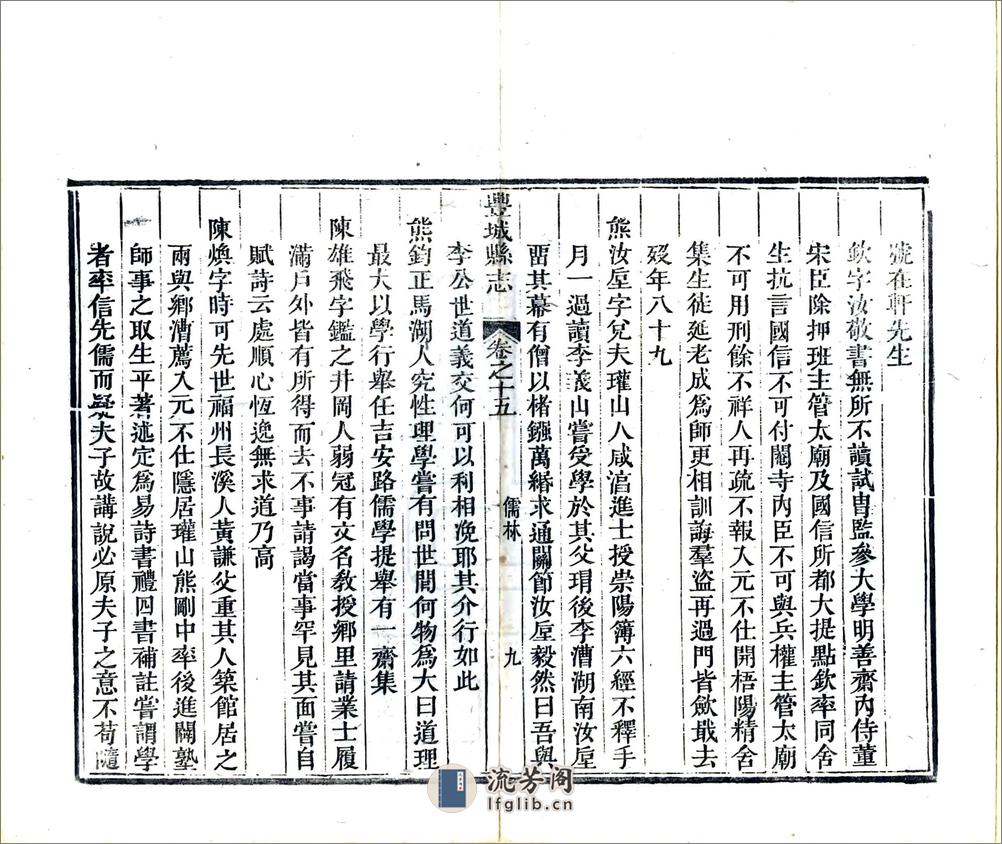 號在軒先生
欽字汝敬書無所不讀試冑監參大學明善齋內侍董
宋臣除押班主管太廟及國信所都大提點欽率同舍
生抗言國信不可付閹寺內臣不可與兵權主管太廟
不可用刑餘不祥人再疏不報入元不仕開梧陽精舍
集生徒延老成爲師更相訓誨羣盜再過門皆歛戢去
歿年八十九
熊汝垕字兌夫瓘山人咸淳進士授崇陽簿六經不釋手
月一過讀李義山嘗受學於其父琄後李漕湖南汝垕
畱其幕有僧以楮鏹萬緡求通關節汝垕毅然曰吾與
豐城縣志
卷之十五
儒林
九
李公世道義交何可以利相浼耶其介行如此
熊鈞正馬湖人究性理學嘗有問世閒何物爲大曰道理
最大以學行舉任吉安路儒學提舉有一齋集
陳雄飛字鑑之井岡人弱冠有文名敎授鄉里請業士履
滿戶外皆有所得而去不事請謁當事罕見其面嘗自
賦詩云處順心恆逸無求道乃高
陳煥字時可先世福州長溪人黃謙父重其人築館居之
兩與鄉漕薦入元不仕隱居瓘山熊剛中率後進闢塾
師事之取生平著述定爲易詩書禮四書補註嘗謂學
者率信先儒而疑夫子故講說必原夫子之意不苟隨
流芳阁
lfglib.cn